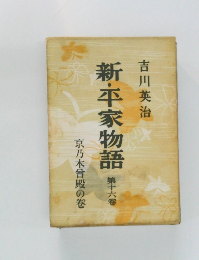 吉川英治
新・平家物語
第十六巻
京乃木曾殿の巻